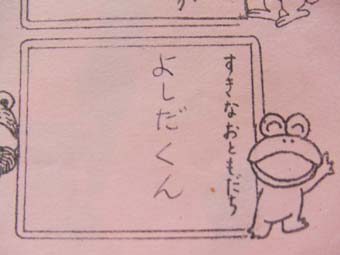 すきなおともだち
よしだくん